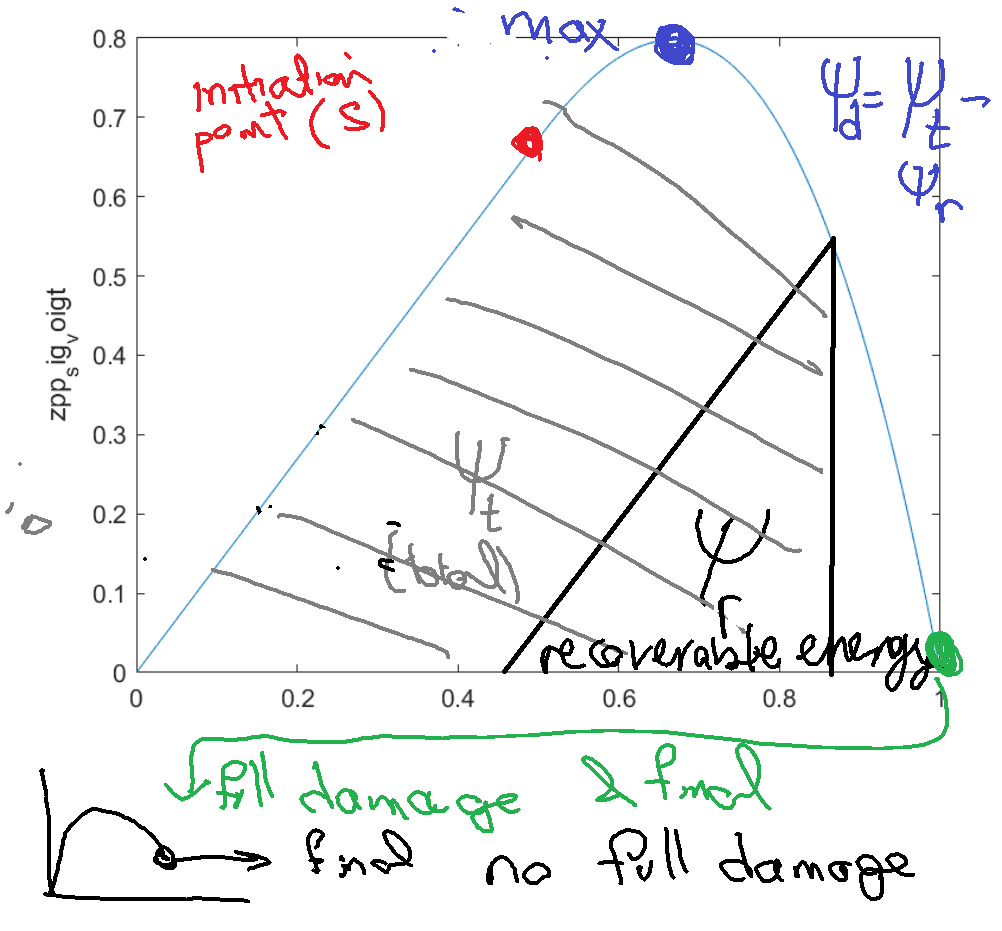 max
0.8
initiation
point (S)
ψd = ψt -
ψr
0.7
0.6
0.5
0.4
0.3
0.2
0.1
0
zpp_sig_voigt
ψt
(total)
ψr
recoverable energy
0 0.2 0.4 0.6 0.8 1
full damage & final
final no full damage